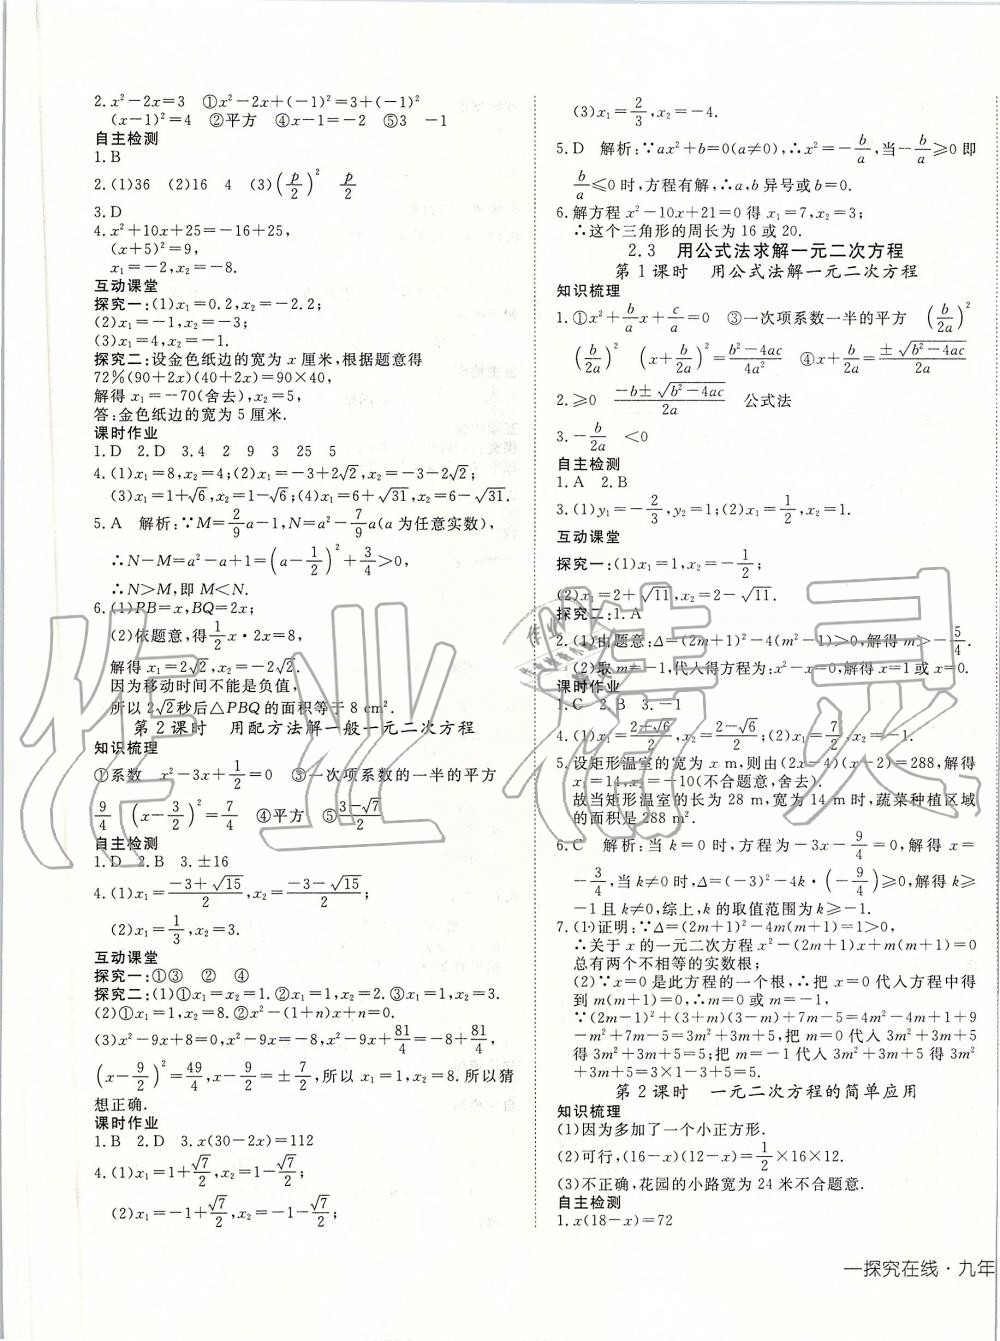 2. x²－2x=3　①x²－2x+(－1)²=3+(－1)²
(x－1)²=4　②平方　④x－1=－2　⑤3　－1
自主检测
1. B
2. (1)36　(2)16　4　(3)(p/2)²　p/2
3. D
4. x²+10x+25=－16+25,
(x+5)²=9,
x₁=－2, x₂=－8.
互动课堂
探究一:(1)x₁=0.2, x₂=－2.2;
(2)x₁=－1, x₂=－3;
(3)x₁=4, x₂=－1.
探究二:设金色纸边的宽为 x 厘米,根据题意得
72%(90+2x)(40+2x)=90×40,
解得 x₁=－70(舍去), x₂=5,
答:金色纸边的宽为 5 厘米.
课时作业
1. D　2. D　3. 4　2　9　3　25　5
4. (1)x₁=8, x₂=4; (2)x₁=－3+2√2, x₂=－3－2√2;
(3)x₁=1+√6, x₂=1－√6; (4)x₁=6+√31, x₂=6－√31.
5. A　解析:∵M=2/9a－1, N=a²－7/9a(a 为任意实数),
∴N－M=a²－a+1=(a－1/2)²+3/4>0,
∴N>M,即 M<N.
6. (1)PB=x, BQ=2x;
(2)依题意,得1/2x·2x=8,
解得 x₁=2√2, x₂=－2√2.
因为移动时间不能是负值,
所以 2√2秒后△PBQ 的面积等于 8 cm².
第 2 课时　用配方法解一般一元二次方程
知识梳理
①系数　x²－3x+1/2=0　③一次项系数的一半的平方
9/4　(x－3/2)²=7/4　④平方　⑤(3－√7)/2
自主检测
1. D　2. B　3. ±16
4. (1)x₁=(－3+√15)/2, x₂=(－3－√15)/2;
(2)x₁=1/3, x₂=3.
互动课堂
探究一:①③　②　④
探究二:(1)①x₁=x₂=1. ②x₁=1, x₂=2. ③x₁=1, x₂=3.
(2)①x₁=1, x₂=n. ②x²－(1+n)x+n=0.
(3)x²－9x+8=0, x²－9x=－8, x²－9x+81/4=－8+81/4,
(x－9/2)²=49/4, x－9/2=±7/2,所以 x₁=1, x₂=8. 所以猜
想正确.
课时作业
1. B　2. D　3. x(30－2x)=112
4. (1)x₁=1+√7/2, x₂=1－√7/2;
(2)x₁=－1+√7/2, x₂=－1－√7/2;
(3)x₁=2/3, x₂=－4.
5. D　解析:∵ax²+b=0(a≠0),∴x²=－b/a,当－b/a≥0 即
b/a≤0 时,方程有解,∴a, b 异号或b=0.
6. 解方程 x²－10x+21=0 得 x₁=7, x₂=3;
∴这个三角形的周长为 16 或 20.
2.3　用公式法求解一元二次方程
第 1 课时　用公式法解一元二次方程
知识梳理
1. ①x²+b/a x+c/a=0　③一次项系数一半的平方　(b/2a)²
(b/2a)²　(x+b/2a)²=(b²－4ac)/4a²　④x+b/2a=±√(b²－4ac)/2a
2. ≥0　(－b±√(b²－4ac))/2a　公式法
3. －b/2a　<0
自主检测
1. A　2. B
3. (1)y₁=－2/3, y₂=1; (2)x₁=1/2, x₂=1.
互动课堂
探究一:(1)x₁=1, x₂=－1/2;
(2)x₁=2+√11, x₂=2－√11.
探究二:1. A
2. (1)由题意:Δ=(2m+1)²－4(m²－1)>0,解得 m>－5/4.
(2)取 m=－1,代入得方程为 x²－x=0,解得 x=1或 x=0.
课时作业
1. C　2. B　3. －1
4. (1)x₁=(2+√6)/2, x₂=(2－√6)/2; (2)x₁=7/2, x₂=－1.
5. 设矩形温室的宽为 x m,则由(2x－4)(x－2)=288,解得
x₁=14, x₂=－10(不合题意,舍去).
故当矩形温室的长为 28 m,宽为 14 m 时,蔬菜种植区域
的面积是 288 m².
6. C　解析:当 k=0 时,方程为－3x－9/4=0,解得 x=
－3/4,当 k≠0 时,Δ=(－3)²－4k·(－9/4)≥0,解得 k≥
－1 且 k≠0,综上,k 的取值范围为 k≥－1.
7. (1)证明:∵Δ=(2m+1)²－4m(m+1)=1>0,
∴关于 x 的一元二次方程 x²－(2m+1)x+m(m+1)=0
总有两个不相等的实数根;
(2)∵x=0 是此方程的一个根,∴把 x=0 代入方程中得
到 m(m+1)=0,∴m=0 或 m=－1,
∵(2m－1)²+(3+m)(3－m)+7m－5=4m²－4m+1+9
－m²+7m－5=3m²+3m+5,把 m=0 代入 3m²+3m+5
得 3m²+3m+5=5;把 m=－1 代入 3m²+3m+5 得
3m²+3m+5=3×1－3+5=5.
第 2 课时　一元二次方程的简单应用
知识梳理
(1)因为多加了一个小正方形.
(2)可行,(16－x)(12－x)=1/2×16×12.
(3)不正确,花园的小路宽为 24 米不合题意.
自主检测
1. x(18－x)=72
一探究在线·九年
作业精灵